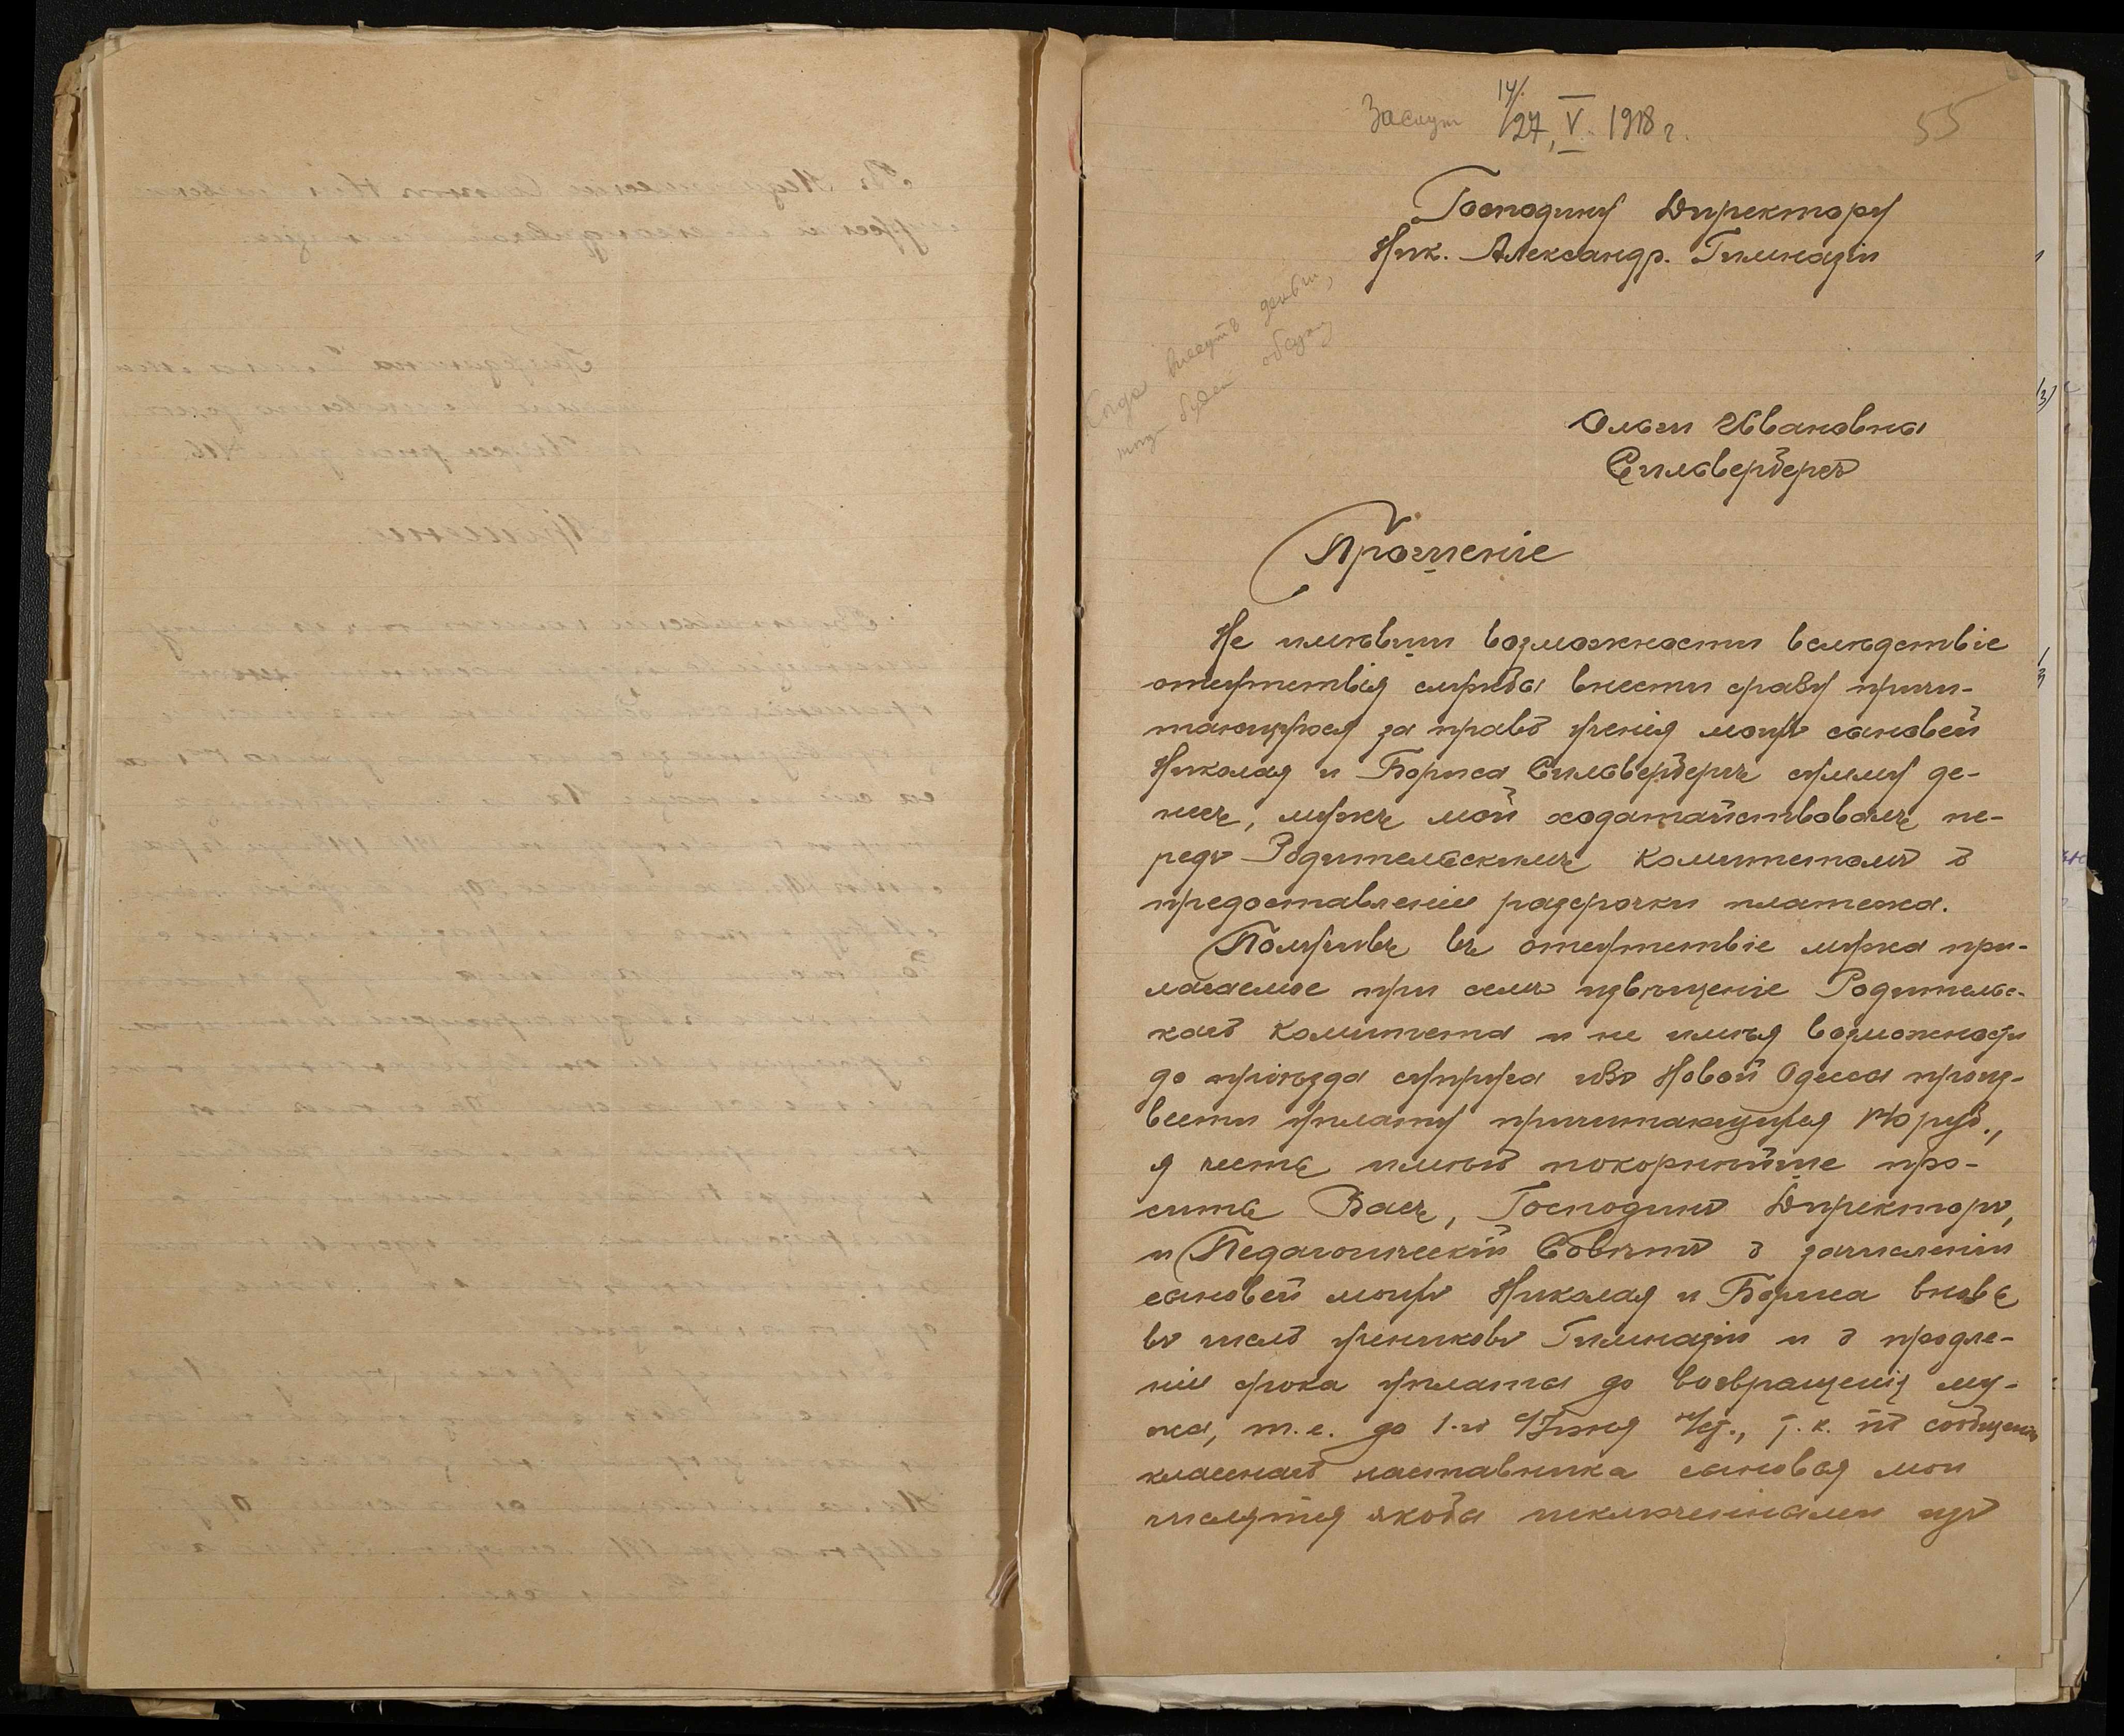 Заслуш 14/27, V. 1918 г.
55
Господину Директору
Ник. Александр. Гимназіи
Когда внесутъ деньги,
тогда будемъ
Ольги Ивановны
Сильвербергъ
Прошеніе
Не имѣвши возможности вслѣдствіе
отсутствія службы внести сразу причи-
тающуюся за право ученія моихъ сыновей
Николая и Бориса Сильвербергъ сумму де-
негъ, мужъ мой ходатайствовалъ пе-
редъ Родительскимъ Комитетомъ о
предоставленіи разсрочки платежа.
Получивъ въ отсутствіе мужа при-
лагаемое при семъ извѣщеніе Родительс-
каго Комитета и не имѣя возможности
до пріѣзда супруга изъ Новой Одессы произ-
вести уплату причитающихся 140 руб.,
я честь имѣю покорнѣйше про-
сить Васъ, Господинъ Директоръ,
и Педагогическій Совѣтъ о зачисленіи
сыновей моихъ Николая и Бориса вновь
въ число учениковъ Гимназіи и о продле-
ніи срока уплаты до возвращенія му-
жа, т.е. до 1-го Іюня т. к. по сообщенію
класснаго наставника сыновья мои
числятся якобы исключенными изъ